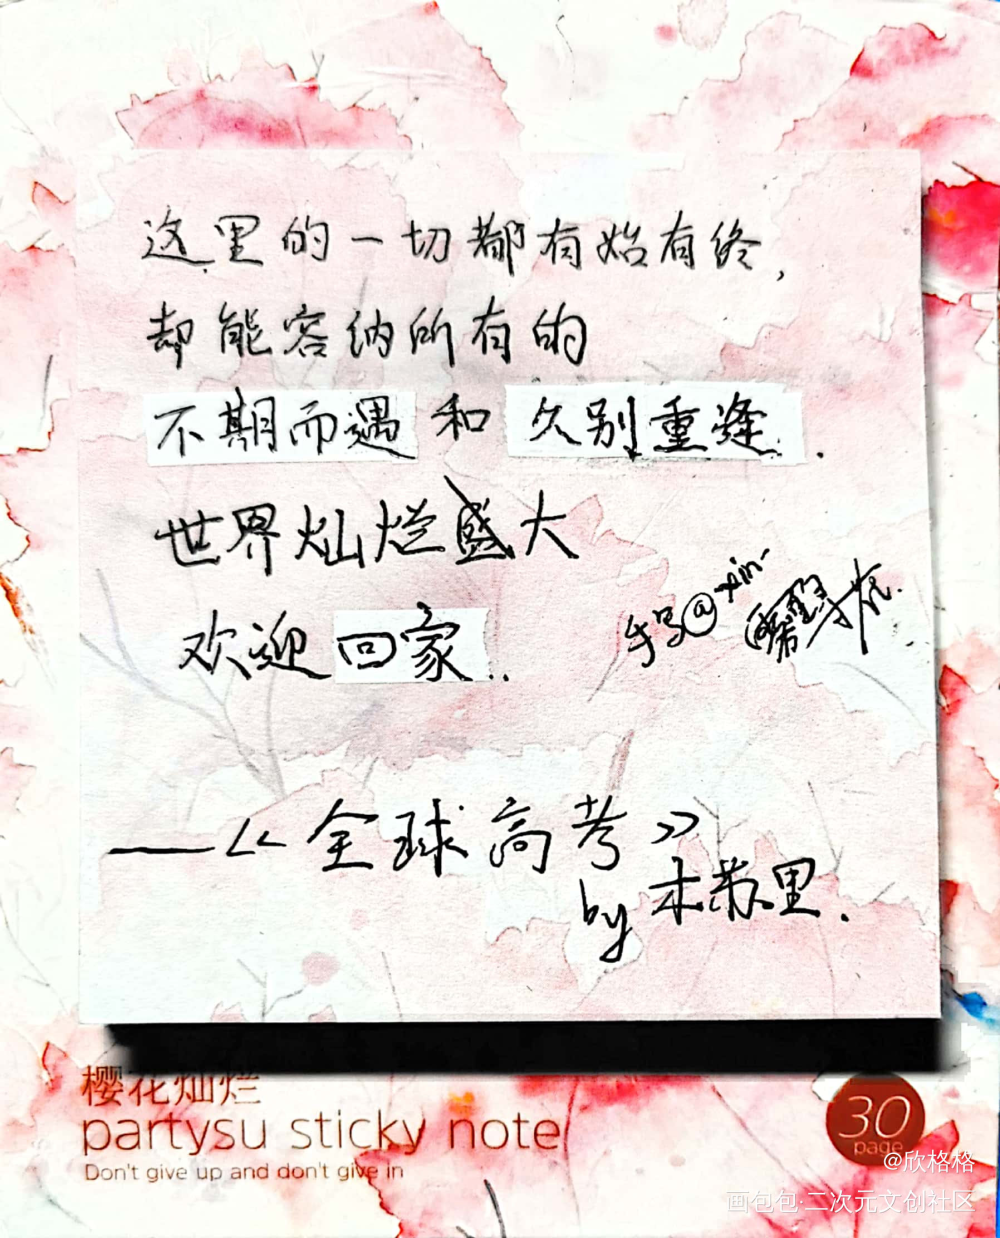 这里的一切都有始有终，
却能容纳所有的
不期而遇和久别重逢.
世界灿烂盛大
欢迎回家..
手写@xin-
——《全球高考》
by 木苏里.
樱花灿烂
partysu sticky note
Don't give up and don't give in
30
page
@欣格格
画包包·二次元文创社区